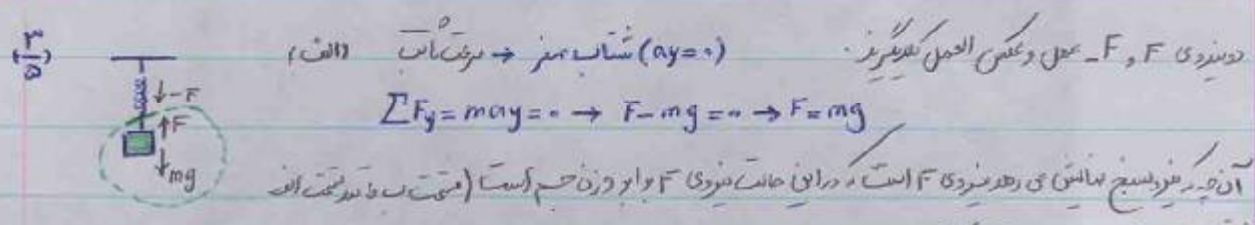 دو نیروی F و -F عمل و عکس العمل یکدیگرند.
(۳/۵) الف) سرعت ثابت → شتاب صفر (ay=0)
↓-F
↑F
↓mg
ΣFy = may = 0 → F-mg = 0 → F = mg
آن چه که نیروسنج نمایش می دهد نیروی F است که در این حالت نیروی F برابر وزن جسم است (قسمت ب مانند قسمت الف